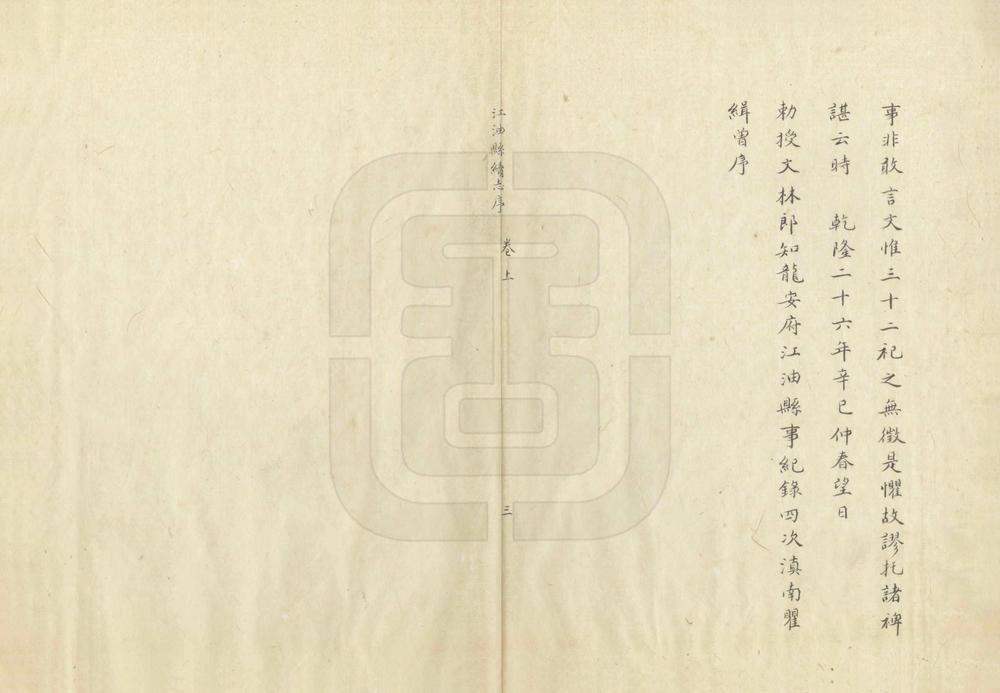 事非敢言文惟三十二祀之無徵是懼故謬托諸裨
諶云時　乾隆二十六年辛巳仲春望日
勅授文林郎知龍安府江油縣事紀錄四次滇南瞿
緝曾序
江油縣續志序　卷上　三